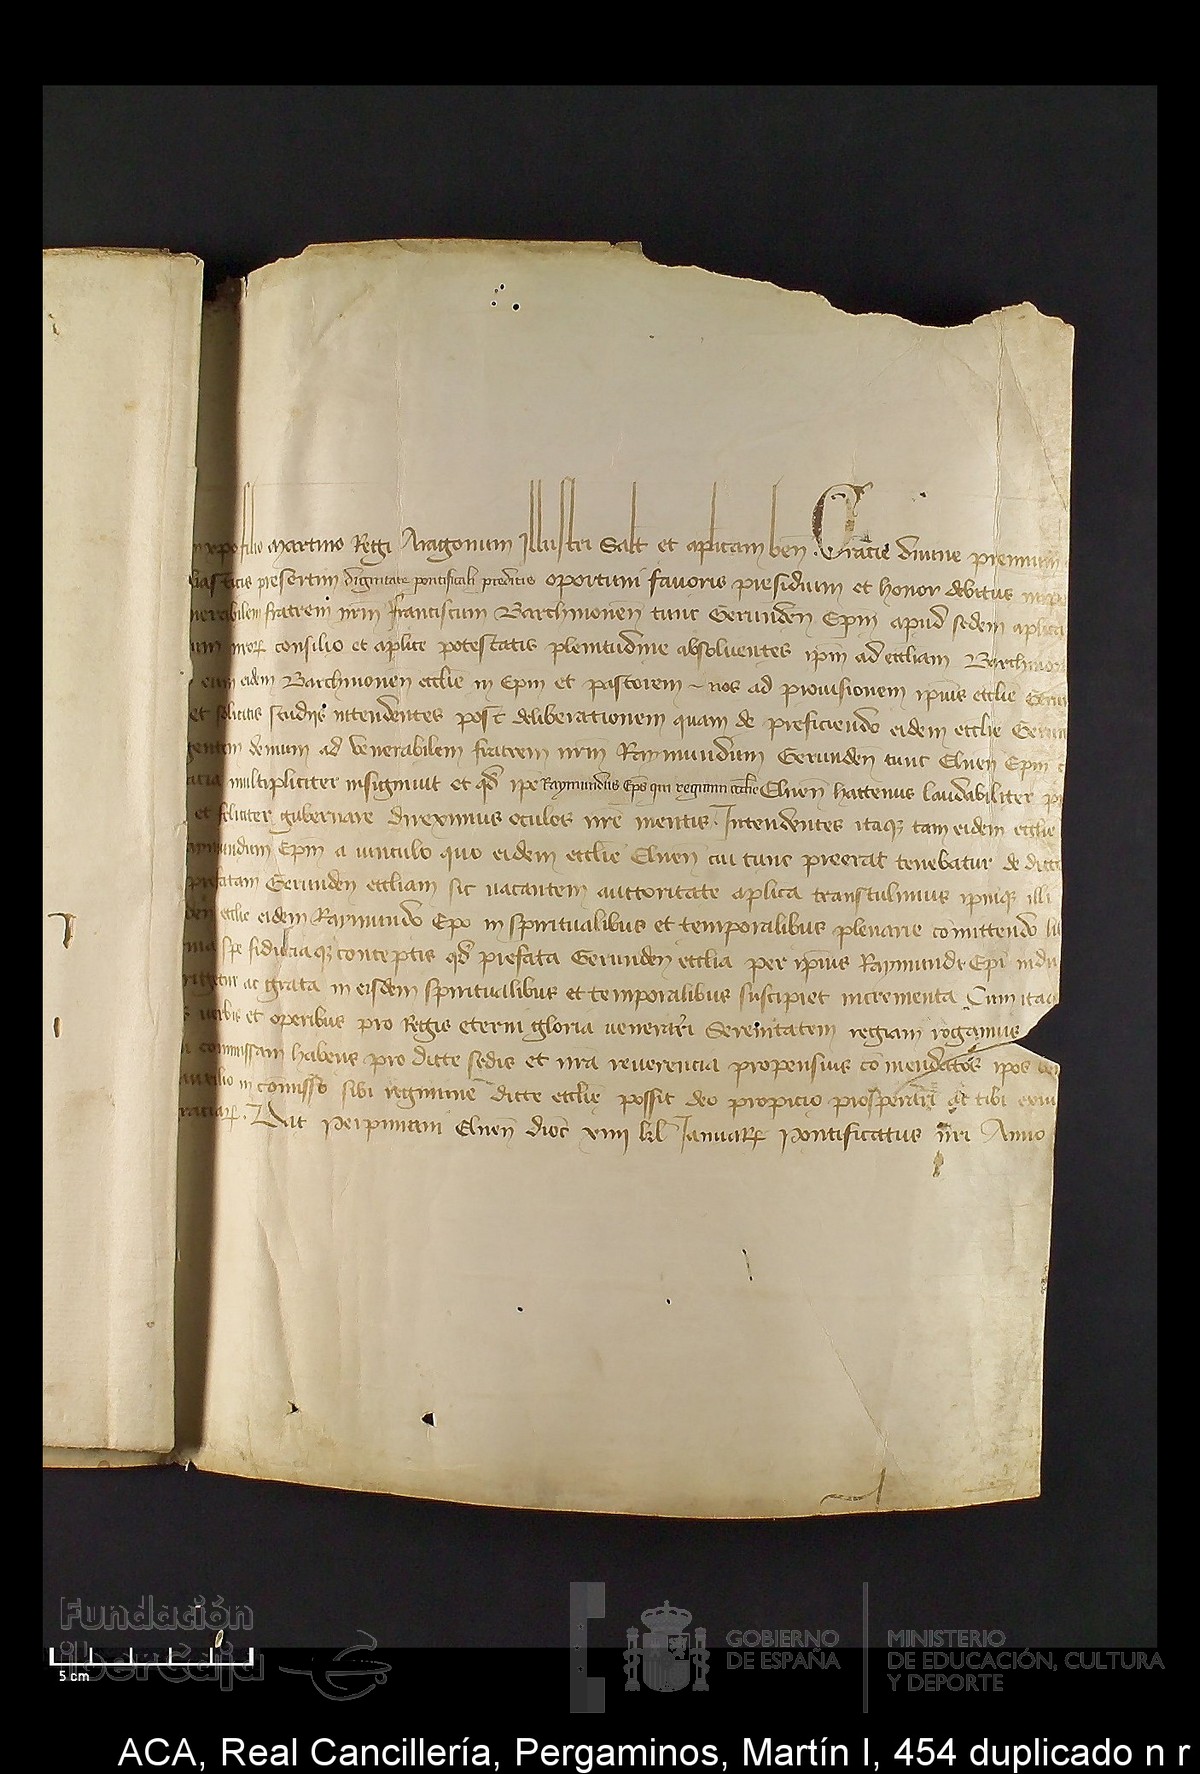 xpo filio Martino Regi Aragonum Illustri Salt et aplicam ben Gratie divine premium
presertim dignitate pontificali preditis oportuni favoris presidium et honor debitus
fratrem nrm Franciscum Barchinonen tunc Gerunden Epm apud sedem aplica
consilio et aplice potestatis plenitudine absoluentes ipm ad eccliam Barchinon
eidem Barchinonen ecclie in Epm et pastorem nos ad provisionem ipius ecclie Gerun
et solicitis studijs intendentes post deliberationem quam de preficiendo eidem ecclie Gerun
demum ad venerabilem fratrem nrm Raymundum Gerunden tunc Elnen Epm
multipliciter insigniuit et qd ipe Raymundus Eps qui regimini ecclie Elnen hactenus laudabiliter
et feliciter gubernare direximus oculos nre mentis Intendentes itaq tam eidem ecclie
Epm a vinculo quo eidem ecclie Elnen cui tunc preerat tenebatur de dicto
prefatam Gerunden eccliam sic vacantem auctoritate aplica transtulimus ipmq illi
ecclie eidem Raymundo Epo in spiritualibus et temporalibus plenarie comittendo
spe fiduciaq conceptis qd prefata Gerunden ecclia per ipius Raymundi Epi
ac grata in eisdem spiritualibus et temporalibus suscipiet incrementa Cum itaq
verbis et operibus pro Regis eterni gloria venerari Serenitatem regiam rogamus
commissam habens pro dicte sedis et nra reverencia propensius comendatos ipos
auxilio in comisso sibi regimine dicte ecclie possit deo propicio prosperari ac tibi
Dat Perpiniani Elnen dioc xviii kl Januarr Pontificatus nri Anno
Fundación
iberCaja
5 cm
GOBIERNO
DE ESPAÑA
MINISTERIO
DE EDUCACIÓN, CULTURA
Y DEPORTE
ACA, Real Cancillería, Pergaminos, Martín I, 454 duplicado n r